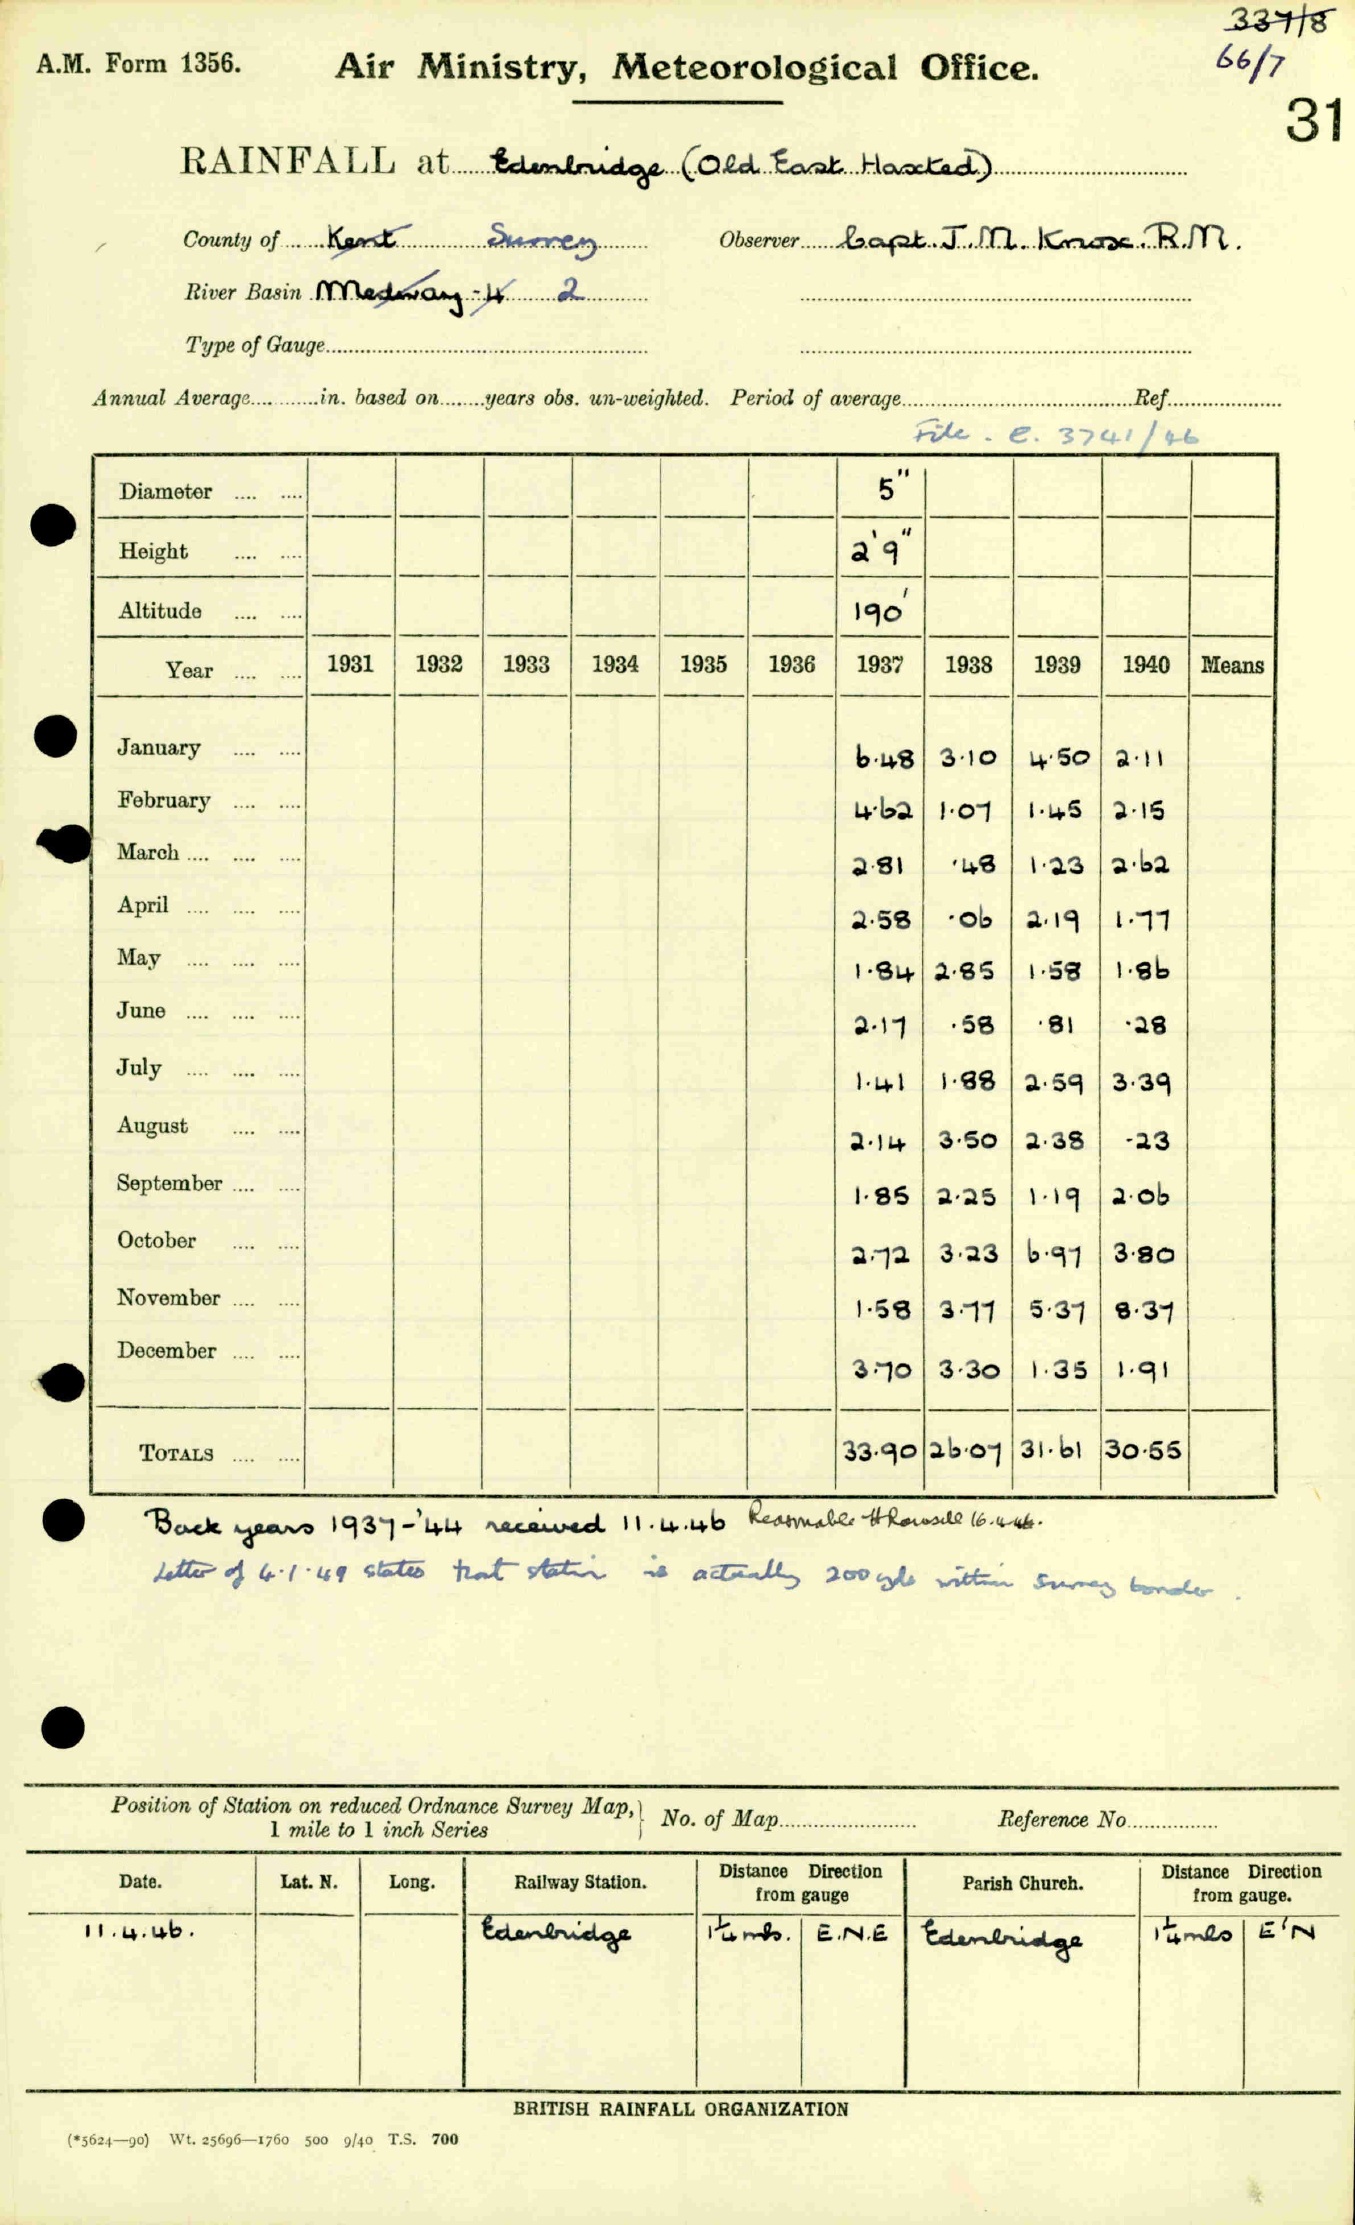 337/8
66/7
A.M. Form 1356. Air Ministry, Meteorological Office.
31
RAINFALL at Edenbridge (Old East Haxted)
County of Kent Surrey Observer Capt. J. M. Knox. R.M.
River Basin Medway - 4 2
Type of Gauge
Annual Average in. based on years obs. un-weighted. Period of average Ref
File. C. 3741/46
Diameter 5"
Height 2'9"
Altitude 190'
Year 1931 1932 1933 1934 1935 1936 1937 1938 1939 1940 Means
January 6.48 3.10 4.50 2.11
February 4.62 1.07 1.45 2.15
March 2.81 .48 1.23 2.62
April 2.58 .06 2.19 1.77
May 1.84 2.85 1.58 1.86
June 2.17 .58 .81 .28
July 1.41 1.88 2.59 3.39
August 2.14 3.50 2.38 .23
September 1.85 2.25 1.19 2.06
October 2.72 3.23 6.97 3.80
November 1.58 3.77 5.37 8.37
December 3.70 3.30 1.35 1.91
TOTALS 33.90 26.07 31.61 30.55
Back years 1937-'44 received 11.4.46 Reasonable 16.4.46.
Letter of 4.1.49 states that station is actually 200 yds within Surrey border.
Position of Station on reduced Ordnance Survey Map, } No. of Map Reference No
1 mile to 1 inch Series
Date. Lat. N. Long. Railway Station. Distance Direction from gauge Parish Church. Distance Direction from gauge.
11.4.46. Edenbridge 1¼ mls. E.N.E Edenbridge 1¼ mls E'N
BRITISH RAINFALL ORGANIZATION
(*5624—90) Wt. 25696—1760 500 9/40 T.S. 700